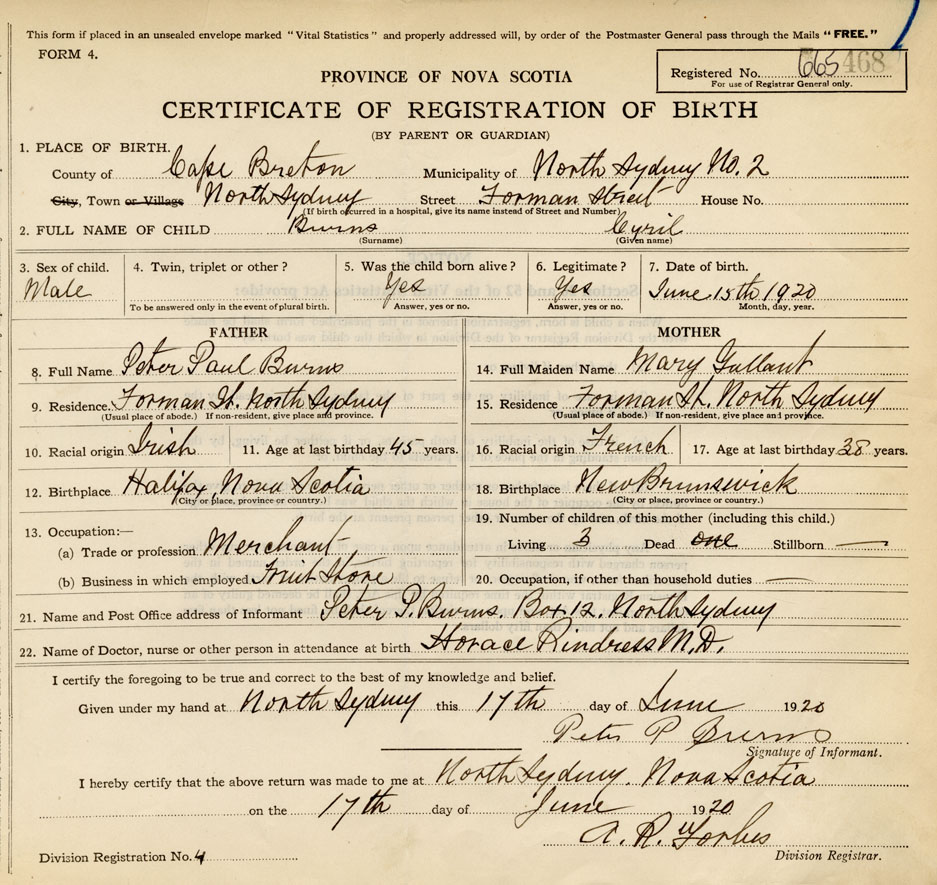 This form if placed in an unsealed envelope marked "Vital Statistics" and properly addressed will, by order of the Postmaster General pass through the Mails "FREE."
FORM 4.
Registered No. 665 468
For use of Registrar General only.
PROVINCE OF NOVA SCOTIA
CERTIFICATE OF REGISTRATION OF BIRTH
(BY PARENT OR GUARDIAN)
1. PLACE OF BIRTH.
County of Cape Breton Municipality of North Sydney No. 2
City, Town or Village North Sydney Street Forman Street House No.
(If birth occurred in a hospital, give its name instead of Street and Number)
2. FULL NAME OF CHILD Burns Cyril
(Surname) (Given name)
3. Sex of child. 4. Twin, triplet or other? 5. Was the child born alive? 6. Legitimate? 7. Date of birth.
Male Yes Yes June 15th 1920
To be answered only in the event of plural birth. Answer, yes or no. Answer, yes or no. Month, day, year.
FATHER MOTHER
8. Full Name Peter Paul Burns 14. Full Maiden Name Mary Gallant
9. Residence. Forman St. North Sydney 15. Residence Forman St. North Sydney
(Usual place of abode.) If non-resident, give place and province. (Usual place of abode.) If non-resident, give place and province.
10. Racial origin Irish 11. Age at last birthday 45 years. 16. Racial origin French 17. Age at last birthday 38 years.
12. Birthplace Halifax, Nova Scotia 18. Birthplace New Brunswick
(City or place, province or country.) (City or place, province or country.)
13. Occupation:— 19. Number of children of this mother (including this child.)
(a) Trade or profession Merchant Living 3 Dead one Stillborn —
(b) Business in which employed Fruit Store 20. Occupation, if other than household duties —
21. Name and Post Office address of Informant Peter P. Burns. Box 12. North Sydney
22. Name of Doctor, nurse or other person in attendance at birth Horace Rindress M.D.
I certify the foregoing to be true and correct to the best of my knowledge and belief.
Given under my hand at North Sydney this 17th day of June 1920
Peter P Burns
Signature of Informant.
I hereby certify that the above return was made to me at North Sydney. Nova Scotia
on the 17th day of June 1920
A. R. Forbes
Division Registration No. 4 Division Registrar.